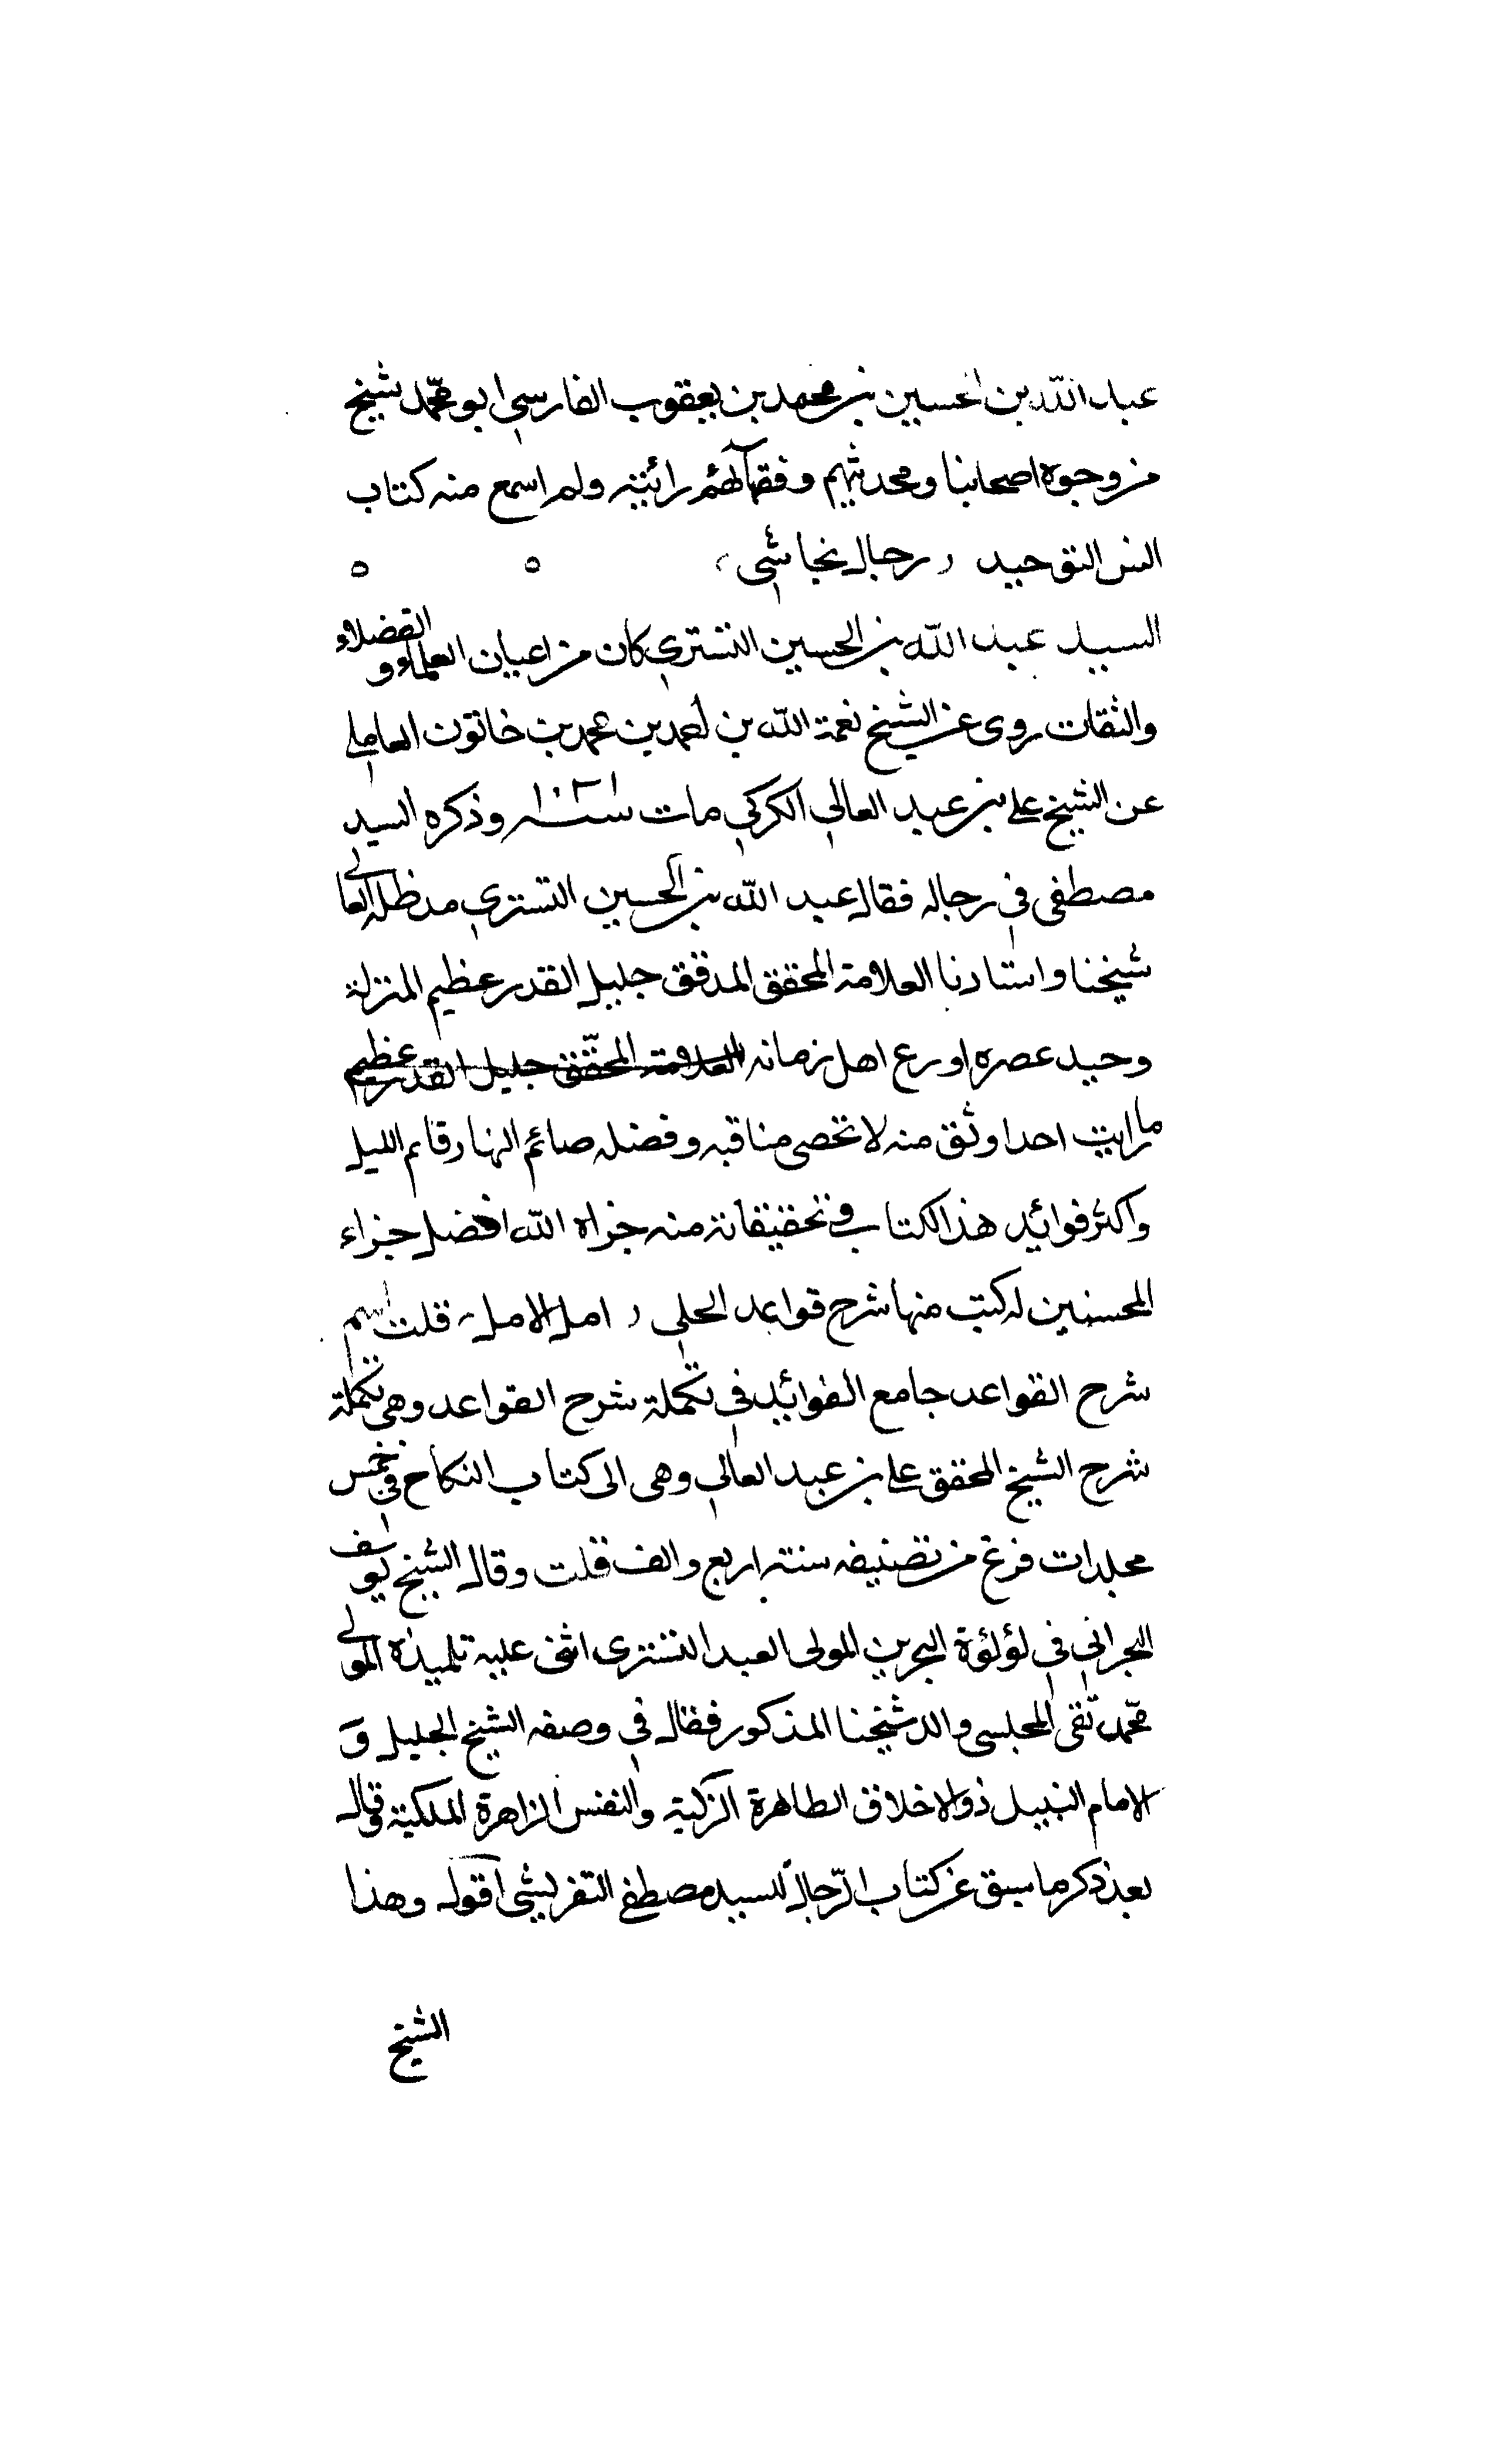 عبد الله بن الحسين بن محمد بن يعقوب الفارسي ابو محمّد شيخ
من وجوه اصحابنا ومحدثيهم وفقهآئهم رائيته ولم اسمع منه كتاب
انس التوحيد رجال نجاشي
السيد عبد الله بن الحسين التستري كان من اعيان العلماء و الفضلاء
والثقات روى عن الشيخ نعمة الله بن احمد بن محمد بن خاتون العاملي
عن الشيخ علي بن عبد العالي الكركي مات سنة ١٠٢١ وذكره السيد
مصطفى في رجاله فقال عبد الله بن الحسين التستري مد ظله العالي
شيخنا واستادنا العلامة المحقق المدقق جليل القدر عظيم المنزلة
وحيد عصره اورع اهل زمانه العلامة المحقّق جليل القدر عظيم
ما رايت احدا وثق منه لا تحصى مناقبه وفضله صائم النهار قائم الليل
واكثر فوائد هذا الكتاب في تحقيقاته منه جزاه الله افضل جزاء
المحسنين له كتب منها شرح قواعد الحلي امل الامل قلت اسم
شرح القواعد جامع الفوائد في تكملة شرح القواعد وهي تكملة
شرح الشيخ المحقق علي بن عبد العالي وهي الى كتاب النكاح في خمس
مجلدات فرغ من تصنيفه سنة اربع والف قلت وقال الشيخ يوسف
البحراني في لؤلؤة البحرين المولى العبد التستري اثنى عليه تلميذه المولى
محمّد تقي المجلسي والد شيخنا المذكور فقال في وصفه الشيخ الجليل و
الامام النبيل ذو الاخلاق الطاهرة الزكية والنفس الزاهرة الملكية قال
بعد ذكر ما سبق عن كتاب الرّجال للسيد مصطفى التفريشي اقول وهذا
الشيخ